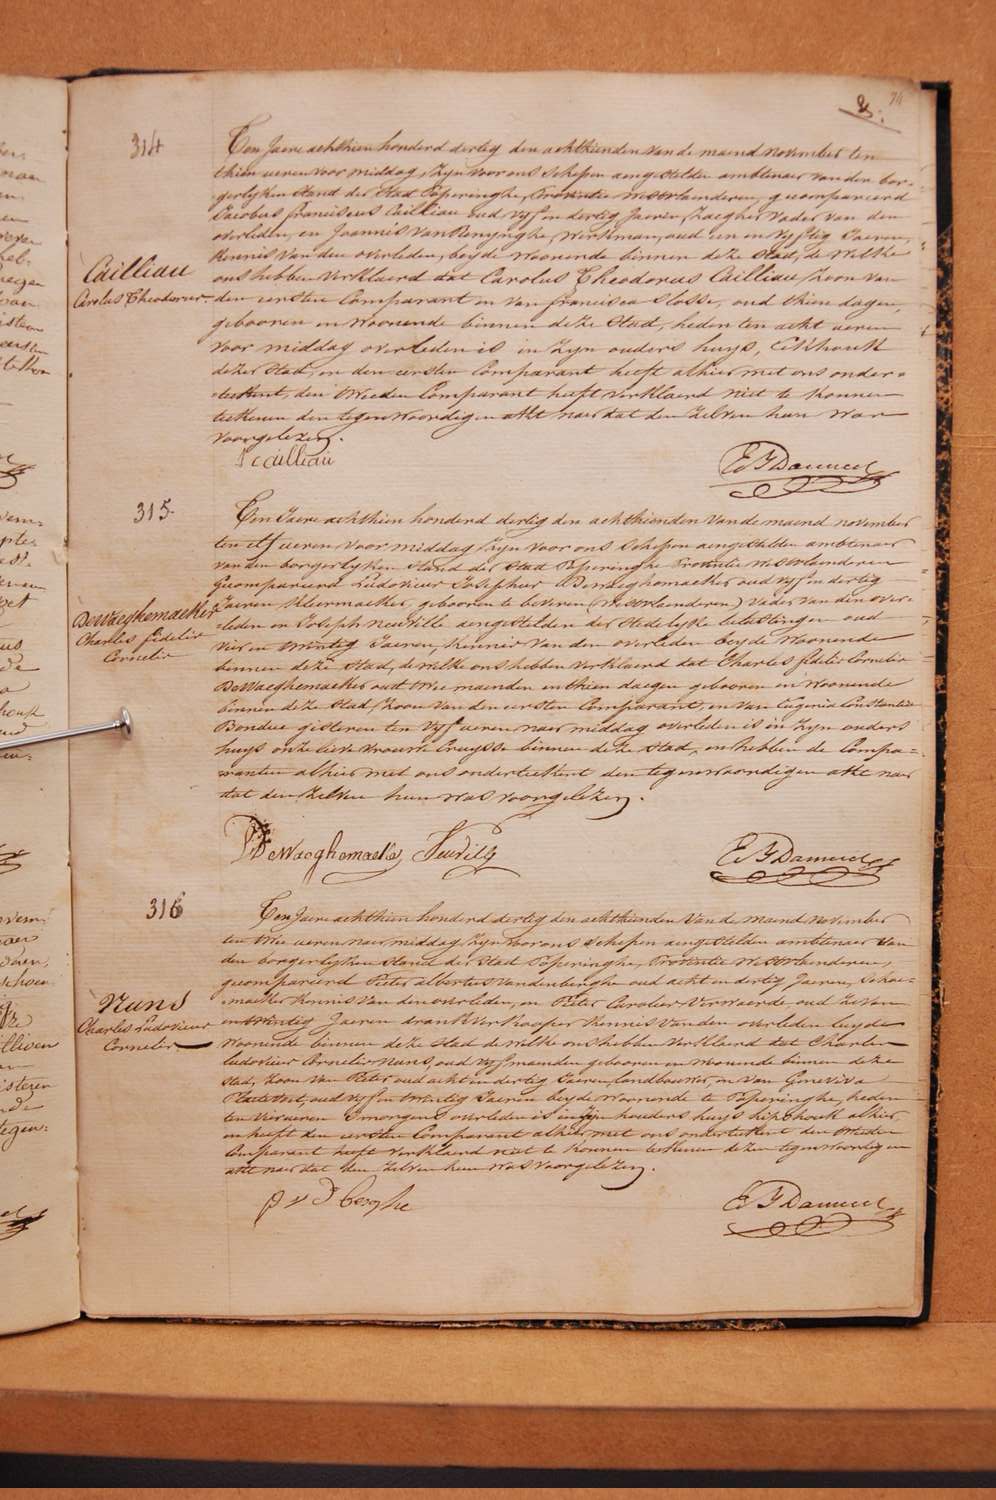 74
314
Ten Jaere achthien honderd dertig den achthienden van de maend november ten
thien ueren voor middag, Zyn voor ons Schepen aengestelden ambtenaer van den bor-
gerlyken stand der Stad Poperinghe, Provintie Westvlaenderen, gecompareerd
Jacobus franciscus Cailliau oud vyf en dertig Jaeren, Zaegher vader van den
overleden, en Joannis Van Renynghe, Werkman, oud een en vyftig Jaeren,
Kennis van den overleden, beyde woonende binnen deze Stad, de welke
Cailliau
Carolus Theodorus
ons hebben verklaerd dat Carolus Theodorus Cailliau, Zoon van
den eersten Comparant en van francisca Slosse, oud thien dagen,
gebooren en woonende binnen deze Stad, heden ten acht ueren
voor middag overleden is in Zyn ouders huys, Eekhoutt
dezer Stad, en den eersten Comparant heeft alhier met ons onder-
teekent, den tweeden Comparant heeft verklaerd niet te konnen
teekenen den tegenwoordigen akt naer dat den zelven hun was
voorgelezen.
J c cailliau
315
Ten Jaere achthien honderd dertig den achthienden van de maend november
ten elf ueren voor middag, Zyn voor ons Schepen aengestelden ambtenaer
van den borgerlyken stand der Stad Poperinghe Provintie Westvlaenderen
Gecompareerd Ludovicus Josephus DeWaeghemaeker oud vyf en dertig
DeWaeghemaeker
Charles fidelis
Cornelis
Jaeren, Kleermaeker, gebooren te beveren (Westvlaenderen) vader van den over-
leden en Joseph Neuville aengestelden der Stedelyke belastingen oud
vier en twintig Jaeren, Kennis van den overleden beyde woonende
binnen deze Stad, de welke ons hebben verklaerd dat Charles fidelis Cornelis
DeWaeghemaeker oudt twee maenden en thien daegen gebooren en woonende
binnen deze Stad, Zoon van den eersten Comparant, en van Eugenia Constantia
Bondue gisteren ten vyf ueren naer middag overleden is in Zyn ouders
huys onze lieve vrouwe Cruysse binnen deze Stad, en hebben de Compa-
ranten alhier met ons onderteekent den tegenwoordigen akt naer
dat den Zelven hun was voorgelezen.
DeWaeghemaeker Neuville
316
Ten Jaere achthien honderd dertig den achthienden van de maend november
ten twee ueren naer middag, Zyn voor ons Schepen aengestelden ambtenaer van
den borgerlyken stand der Stad Poperinghe, Provintie Westvlaenderen,
gecompareerd Pieter albertus Vandenberghe oud acht en dertig Jaeren, Schoe-
Nuns
Charles Ludovicus
Cornelis
maeker Kennis van den overleden, en Pieter Carolus Verwaerde oud Zeven
en twintig Jaeren drankverkooper Kennis van den overleden beyde
woonende binnen deze Stad de welke ons hebben verklaerd dat Charles
ludovicus Cornelis Nuns, oud vyf maenden gebooren en woonende binnen deze
Stad, Zoon van Pieter oud acht en dertig Jaeren, landbouwer, en van Geneviva
oud vyf en twintig Jaeren beyde woonende te Poperinghe, heden
ten vier ueren S'morgens overleden is in Zyn houders huys hipshoek alhier
en heeft den eersten Comparant alhier met ons onderteekent den tweeden
Comparant heeft verklaerd niet te konnen teekenen dezen tegenwoordigen
akt naer dat den Zelven hun was voorgelezen.
p v d berghe